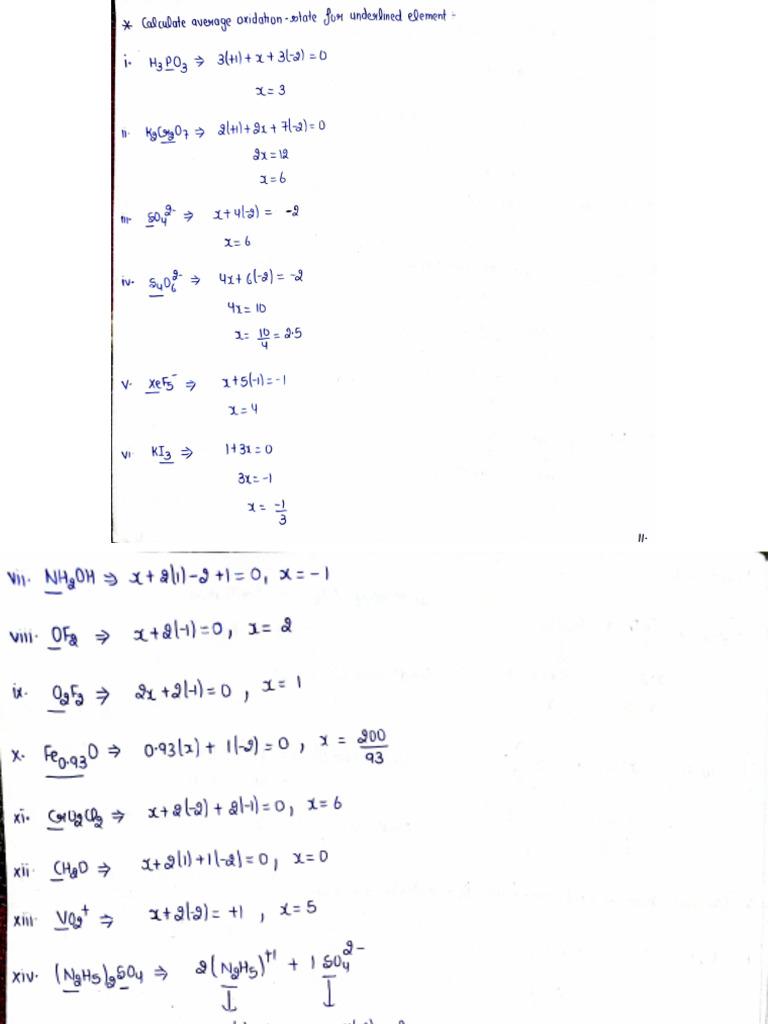 * Calculate average oxidation-state for underlined element:-
i. H₃PO₃ ⇒ 3(+1) + x + 3(-2) = 0
x = 3
ii. K₂Cr₂O₇ ⇒ 2(+1) + 2x + 7(-2) = 0
2x = 12
x = 6
iii. SO₄²⁻ ⇒ x + 4(-2) = -2
x = 6
iv. S₄O₆²⁻ ⇒ 4x + 6(-2) = -2
4x = 10
x = 10/4 = 2.5
v. XeF₅⁻ ⇒ x + 5(-1) = -1
x = 4
vi KI₃ ⇒ 1 + 3x = 0
3x = -1
x = -1/3
11.
vii. NH₂OH ⇒ x + 2(1) - 2 + 1 = 0, x = -1
viii. OF₂ ⇒ x + 2(-1) = 0, x = 2
ix. O₂F₂ ⇒ 2x + 2(-1) = 0, x = 1
x. Fe₀.₉₃O ⇒ 0.93(x) + 1(-2) = 0, x = 200/93
xi. CrO₂Cl₂ ⇒ x + 2(-2) + 2(-1) = 0, x = 6
xii. CH₂O ⇒ x + 2(1) + 1(-2) = 0, x = 0
xiii. VO₂⁺ ⇒ x + 2(-2) = +1, x = 5
xiv. (N₂H₅)₂SO₄ ⇒ 2(N₂H₅)⁺¹ + 1 SO₄²⁻